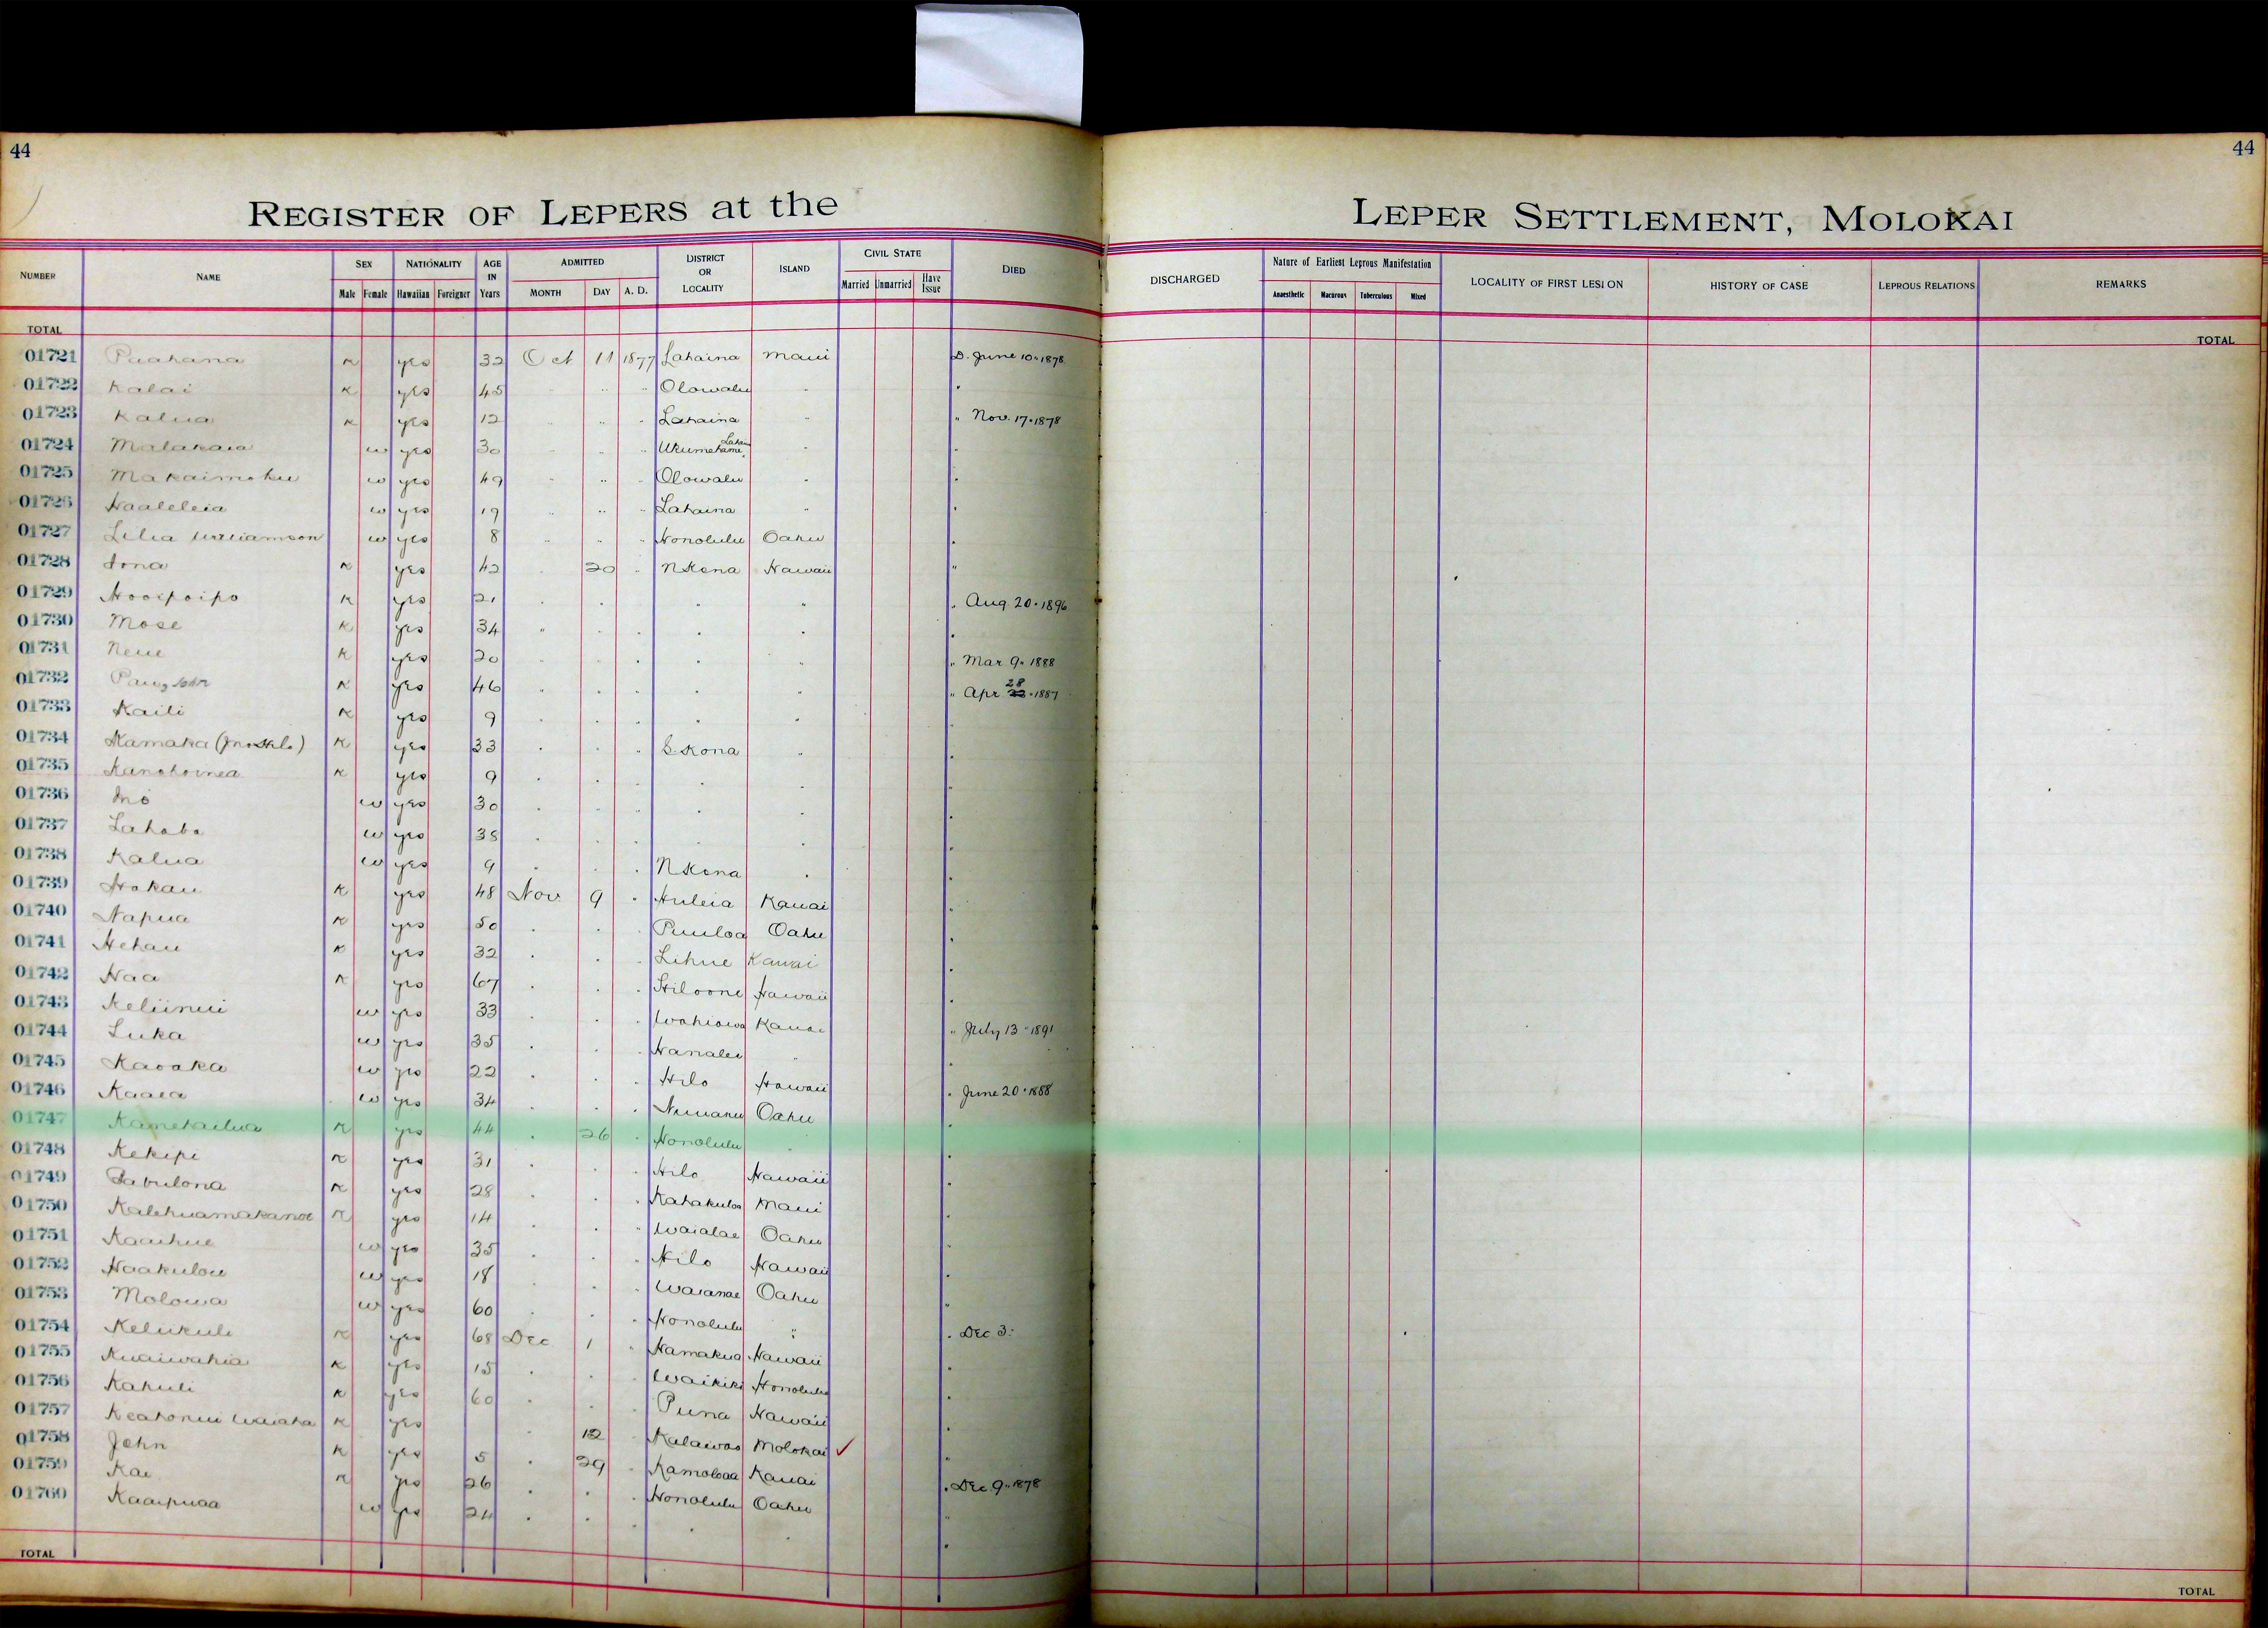 44
44
REGISTER OF LEPERS at the
LEPER SETTLEMENT, MOLOKAI
NUMBER NAME SEX Male Female NATIONALITY Hawaiian Foreigner AGE IN Years ADMITTED MONTH DAY A. D. DISTRICT OR LOCALITY ISLAND CIVIL STATE Married Unmarried Have Issue DIED
DISCHARGED Nature of Earliest Leprous Manifestation Anaesthetic Macurous Tuberculous Mixed LOCALITY OF FIRST LESION HISTORY OF CASE LEPROUS RELATIONS REMARKS
TOTAL TOTAL
01721 Puahana K yes 32 Oct 11 1877 Lahaina Maui D. June 10 " 1878
01722 Kalai K yes 45 " " " Olowalu " "
01723 Kalua K yes 12 " " " Lahaina " " Nov. 17 " 1878
01724 Malakaia w yes 30 " " " Ukumehame, " "
01725 Makaimoku w yes 49 " " " Olowalu " "
01726 Haaleleia w yes 19 " " " Lahaina " "
01727 Lilia Williamson w yes 8 " " " Honolulu Oahu "
01728 Iona K yes 42 " 20 " N Kona Hawaii "
01729 Hooipoipo K yes 21 " " " " " Aug. 20 " 1896
01730 Mose K yes 34 " " " " " "
01731 Neue K yes 20 " " " " " " Mar 9 " 1888
01732 John K yes 46 " " " " " " Apr 28 " 1887
01733 Kaili K yes 9 " " " " " "
01734 Kamaka K yes 33 " " " S. Kona " "
01735 K yes 9 " " " " " "
01736 w yes 30 " " " " " "
01737 w yes 38 " " " " " "
01738 Kalua w yes 9 " " " N Kona " "
01739 Hokau K yes 48 Nov 9 " Huleia Kauai "
01740 Napua K yes 50 " " " Puuloa Oahu "
01741 Hehau K yes 32 " " " Lihue Kauai "
01742 Naa K yes 67 " " " Hiloone Hawaii "
01743 Keliinui w yes 33 " " " Wahiawa Kauai " July 13 " 1891
01744 Luka w yes 35 " " " Hanalei " "
01745 Kaoaka w yes 22 " " " Hilo Hawaii " June 20 " 1888
01746 Kaaea w yes 34 " " " Nuuanu Oahu "
01747 Kamekailua K yes 44 " 26 " Honolulu " "
01748 Kekipi K yes 31 " " " Hilo Hawaii "
01749 Pabulona K yes 28 " " " Kahakuloa Maui "
01750 Kalehuamakanoe K yes 14 " " " Waialae Oahu "
01751 Kaaihue w yes 35 " " " Hilo Hawaii "
01752 Haakulou w yes 18 " " " Waianae Oahu "
01753 Molowa w yes 60 " " " Honolulu " " Dec 3.
01754 Kelukuli K yes 68 Dec 1 " Hamakua Hawaii "
01755 Kuaiwahia K yes 15 " " " Waikiki Honolulu "
01756 Kahuli K yes 60 " " " Puna Hawaii "
01757 Keahonui Waiaha K yes " 12 " Kalawao Molokai ✓ "
01758 John K yes 5 " 29 " Kamoloaa Kauai " Dec 9 " 1878
01759 Kai K yes 26 " " " Honolulu Oahu "
01760 Kaaipuaa w yes 24 " " " " " "
TOTAL TOTAL